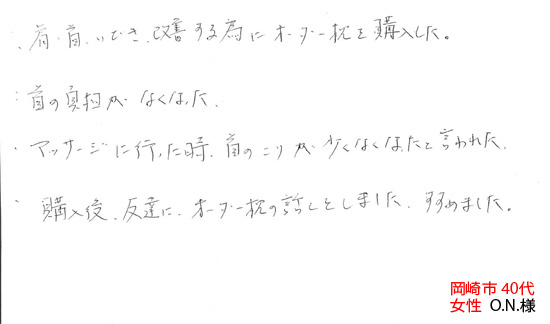 ・肩・首、いびき、改善する為にオーダー枕を購入した。
・首の負担がなくなった。
・マッサージに行った時、首のこりが少なくなったと言われた。
・購入後、友達に、オーダー枕の話しをしました。すすめました。
岡崎市 40代
女性 O.N.様